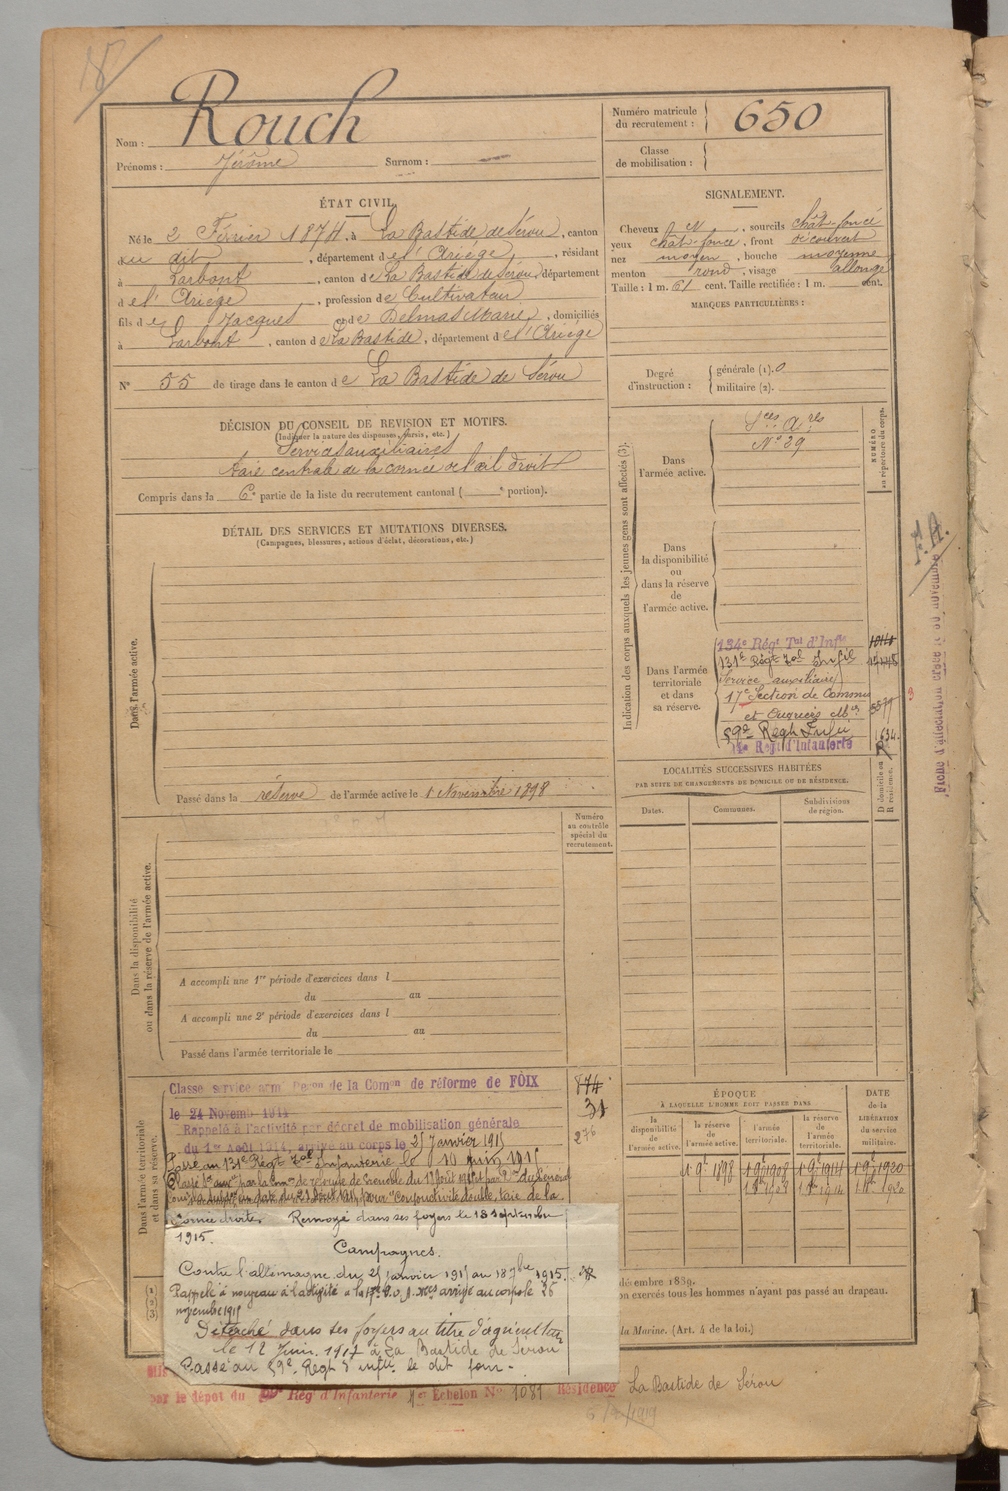 18
Nom : Rouch
Prénoms : Jérôme Surnom :
Numéro matricule du recrutement : 650
Classe de mobilisation :
ÉTAT CIVIL.
Né le 2 Février 1874, à La Bastide de Sérou, canton
du dit, département de l'Ariége, résidant
à Larbont, canton de La Bastide de Sérou, département
de l'Ariége, profession de Cultivateur
fils de Jacques et de Delmas Marie, domiciliés
à Larbont, canton de La Bastide, département de l'Ariége
N° 55 de tirage dans le canton de La Bastide de Sérou
SIGNALEMENT.
Cheveux N, sourcils chât-foncé
yeux chât-foncé, front découvert
nez moyen, bouche moyenne
menton rond, visage allongé
Taille : 1 m. 61 cent. Taille rectifiée : 1 m. cent.
MARQUES PARTICULIÈRES :
Degré d'instruction : générale (1). 0
militaire (2).
DÉCISION DU CONSEIL DE REVISION ET MOTIFS.
(Indiquer la nature des dispenses, sursis, etc.)
Services auxiliaires
taie centrale de la cornée de l'œil droit
Compris dans la 6e partie de la liste du recrutement cantonal ( e portion).
DÉTAIL DES SERVICES ET MUTATIONS DIVERSES.
(Campagnes, blessures, actions d'éclat, décorations, etc.)
Dans l'armée active.
Passé dans la réserve de l'armée active le 1 Novembre 1898
Indication des corps auxquels les jeunes gens sont affectés (3).
NUMÉRO au répertoire du corps.
Dans l'armée active.
Sces Ares
N° 29
Dans la disponibilité ou dans la réserve de l'armée active.
Dans l'armée territoriale et dans sa réserve.
134e Régt Tal d'Infie
131e Régt Tal Infie
(Service auxiliaire)
17e Section de Commis
et Ouvriers Mres 5579
59e Régt Infie 1634
14e Régt d'Infanterie
F.A.
LOCALITÉS SUCCESSIVES HABITÉES
PAR SUITE DE CHANGEMENTS DE DOMICILE OU DE RÉSIDENCE.
Dates. Communes. Subdivisions de région. D domicile ou R résidence.
Numéro au contrôle spécial du recrutement.
Dans la disponibilité ou dans la réserve de l'armée active.
A accompli une 1re période d'exercices dans l
du au
A accompli une 2e période d'exercices dans l
du au
Passé dans l'armée territoriale le
Dans l'armée territoriale et dans sa réserve.
Classé service armé de la Comon de réforme de FOIX
le 24 Novemb 1914
Rappelé à l'activité par décret de mobilisation générale
du 1er Août 1914, arrivé au corps le 25 Janvier 1915
Passé au 131e Régt Tal d'Infanterie le 10 juin 1915
Cornée droite. Renvoyé dans ses foyers le 18 septembre
1915.
Campagnes.
Contre l'allemagne du 25 janvier 1915 au 18 7bre 1915.
Rappelé à nouveau à l'activité à la 17e arrivé au corps le 26
novembre 1915
Détaché dans ses foyers au titre d'agriculteur
le 12 Juin 1917 à La Bastide de Sérou
Passé au 59e Régt d'infie le dit jour.
874
31
276
ÉPOQUE
À LAQUELLE L'HOMME DOIT PASSER DANS
la disponibilité de l'armée active. la réserve de l'armée active. l'armée territoriale. la réserve de l'armée territoriale.
DATE de la LIBÉRATION du service militaire.
1 9bre 1898 1 9bre 1908 1 9bre 1914 1 9bre 1920
1 8bre 1908 1 8bre 1914 1 8bre 1920
décembre 1889.
on exercés tous les hommes n'ayant pas passé au drapeau.
la Marine. (Art. 4 de la loi.)
par le dépôt du 59e Rég d'Infanterie 4e Échelon N° 1081 Résidence La Bastide de Sérou